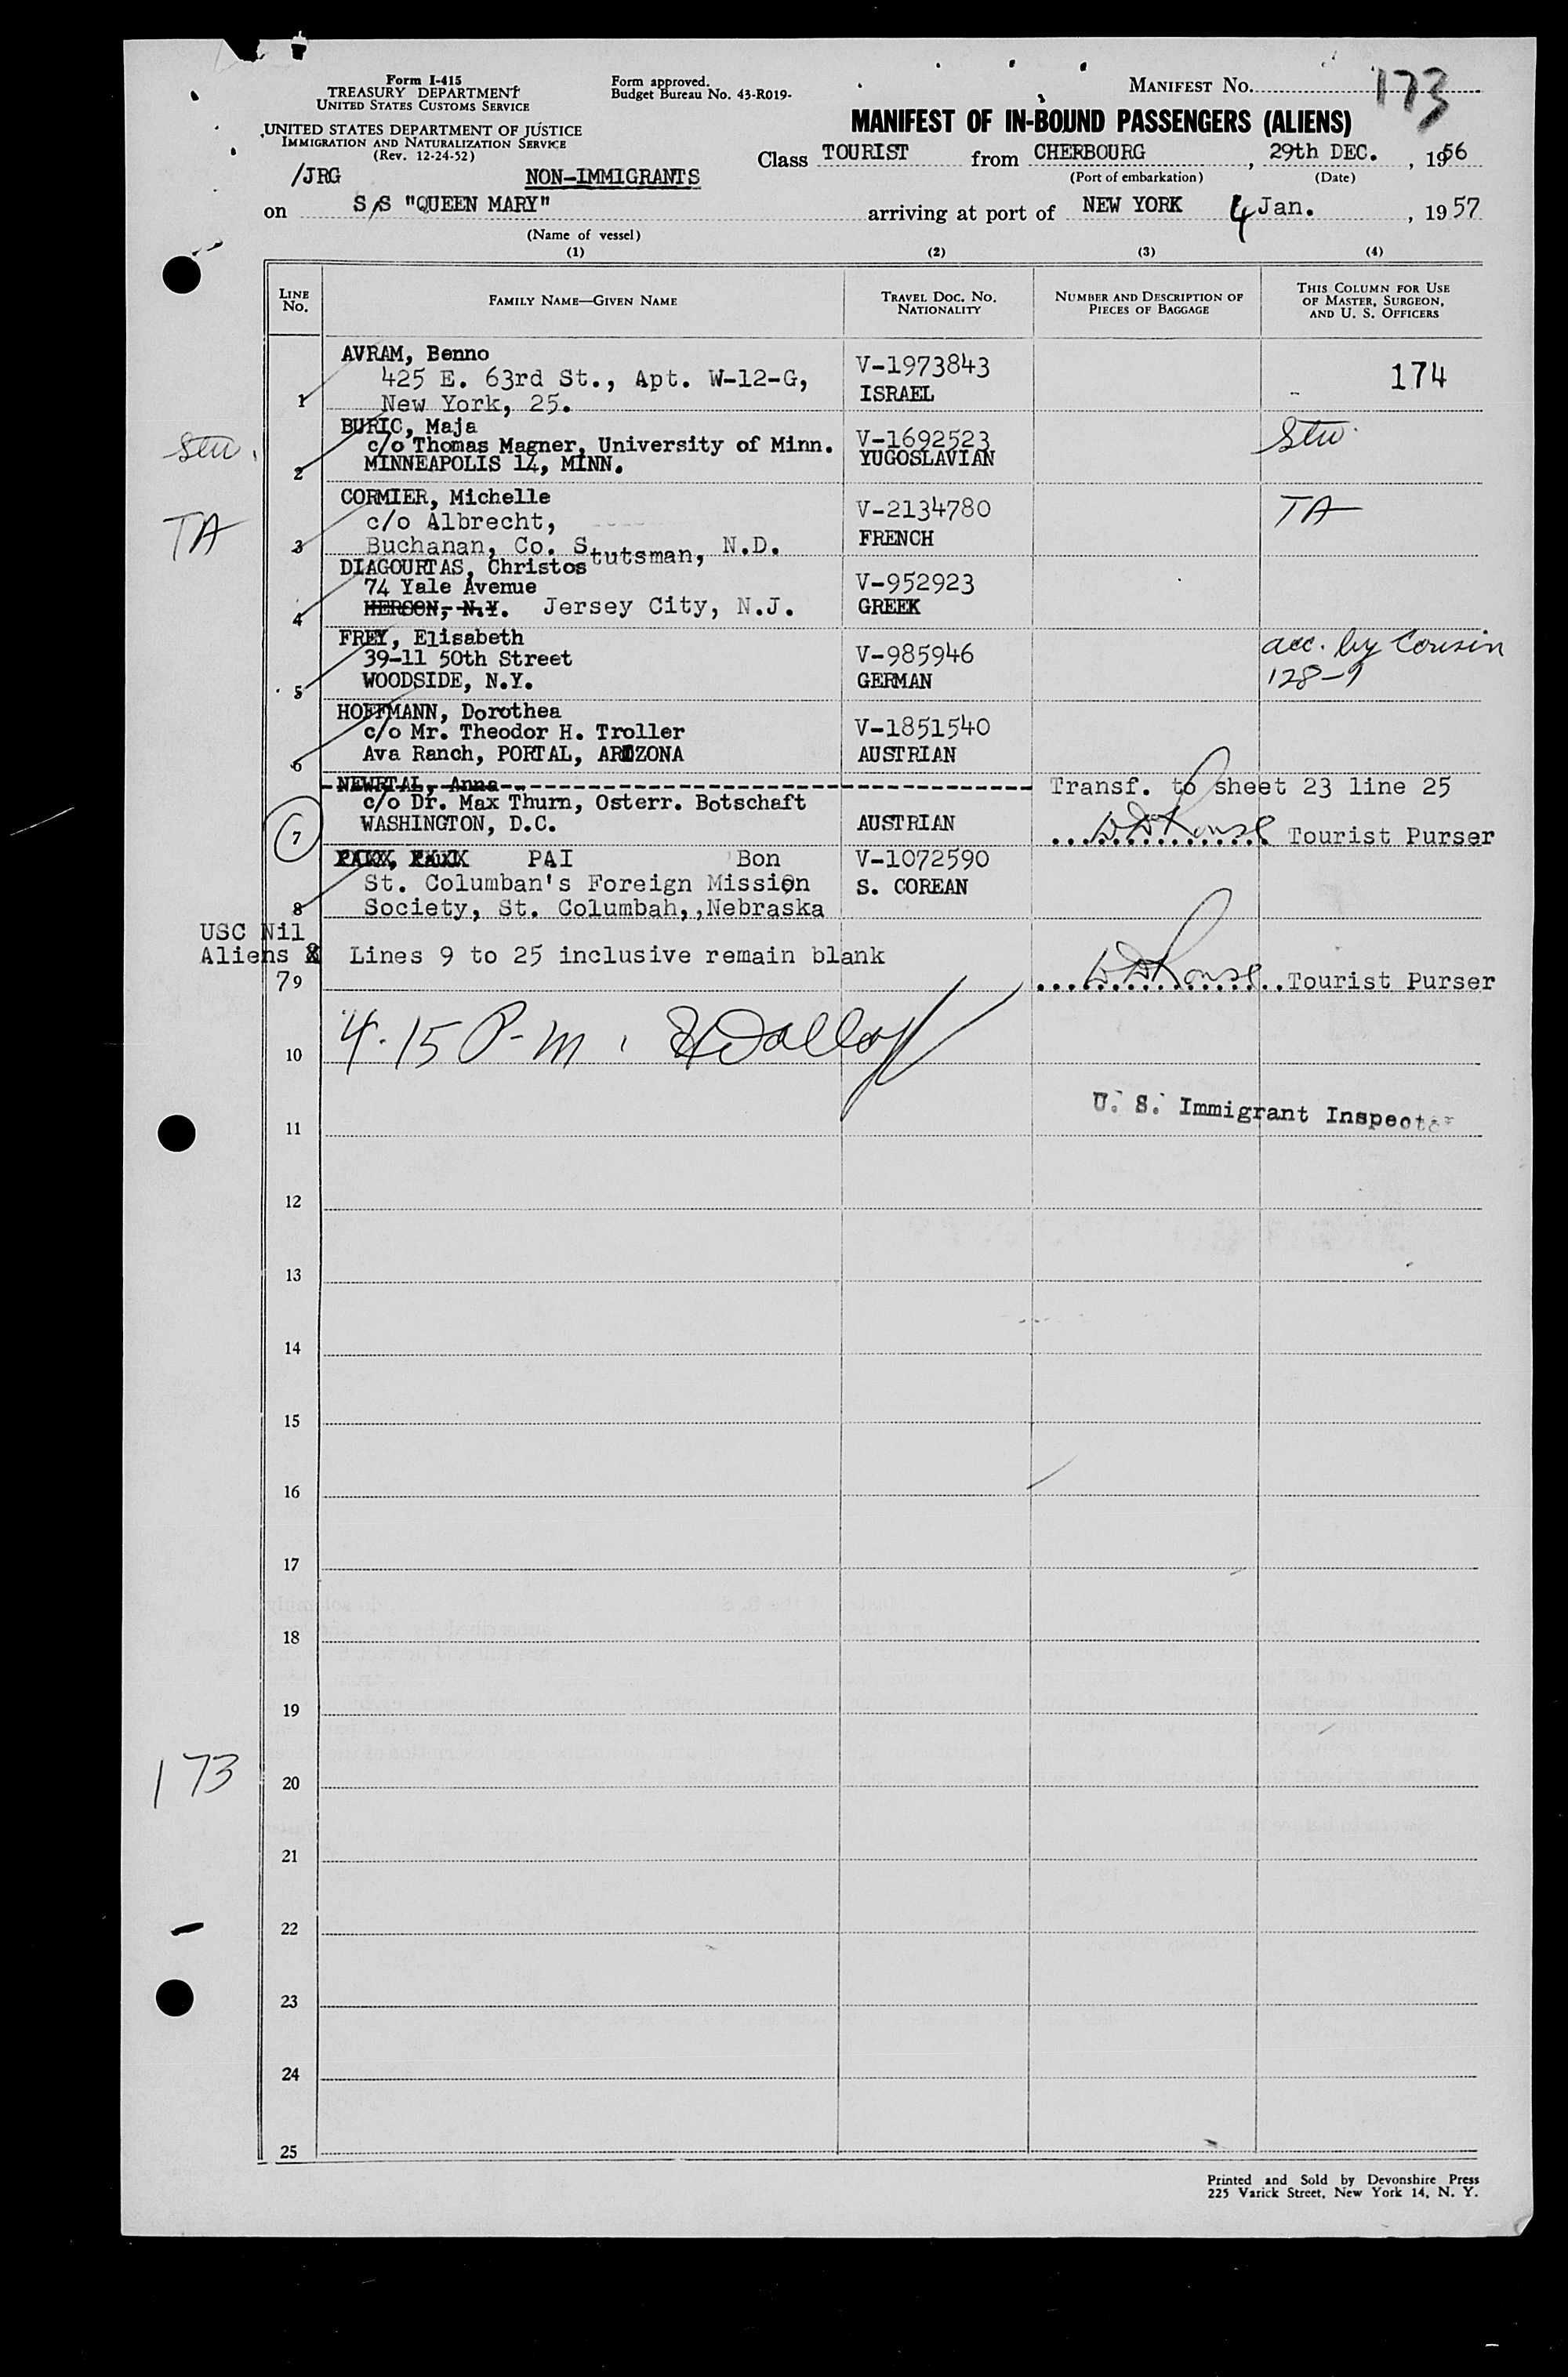 Form I-415
TREASURY DEPARTMENT
UNITED STATES CUSTOMS SERVICE
UNITED STATES DEPARTMENT OF JUSTICE
IMMIGRATION AND NATURALIZATION SERVICE
(Rev. 12-24-52)
Form approved.
Budget Bureau No. 43-R019-
MANIFEST No. 173
MANIFEST OF IN-BOUND PASSENGERS (ALIENS)
Class TOURIST from CHERBOURG, 29th DEC., 1956
(Port of embarkation) (Date)
/JRG NON-IMMIGRANTS
on S/S "QUEEN MARY" arriving at port of NEW YORK 4 Jan., 1957
(Name of vessel)
(1) (2) (3) (4)
LINE No.
FAMILY NAME—GIVEN NAME
TRAVEL DOC. No. NATIONALITY
NUMBER AND DESCRIPTION OF PIECES OF BAGGAGE
THIS COLUMN FOR USE OF MASTER, SURGEON, AND U. S. OFFICERS
AVRAM, Benno
425 E. 63rd St., Apt. W-12-G, V-1973843 174
1 New York, 25. ISRAEL
BURIC, Maja
stu. c/o Thomas Magner, University of Minn. V-1692523 stu.
2 MINNEAPOLIS 14, MINN. YUGOSLAVIAN
CORMIER, Michelle
TA c/o Albrecht, V-2134780 TA
3 Buchanan, Co. Stutsman, N.D. FRENCH
DIAGOURTAS, Christos
74 Yale Avenue V-952923
4 HERSON, N.Y. Jersey City, N.J. GREEK
FREY, Elisabeth
39-11 50th Street V-985946 acc. by Cousin
5 WOODSIDE, N.Y. GERMAN 128-9
HOFFMANN, Dorothea
c/o Mr. Theodor H. Troller V-1851540
6 Ava Ranch, PORTAL, ARIZONA AUSTRIAN
NEWRTAL, Anna Transf. to sheet 23 line 25
c/o Dr. Max Thurn, Osterr. Botschaft
7 WASHINGTON, D.C. AUSTRIAN Tourist Purser
PAI Bon V-1072590
St. Columban's Foreign Mission S. COREAN
8 Society, St. Columbah,,Nebraska
USC Nil
Aliens 8 Lines 9 to 25 inclusive remain blank
7 9 Tourist Purser
4.15 P.m.
10
U. S. Immigrant Inspector
11
12
13
14
15
16
17
18
19
173
20
21
22
23
24
25
Printed and Sold by Devonshire Press
225 Varick Street, New York 14, N. Y.